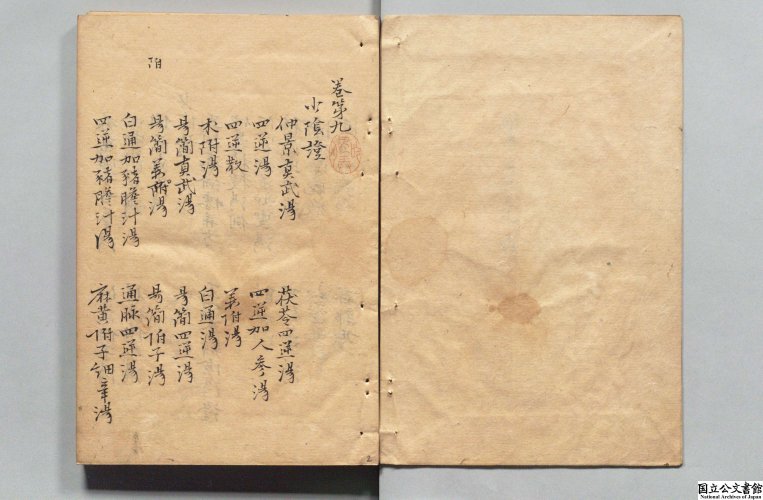 卷第九
少陰證
仲景真武湯 茯苓四逆湯
四逆湯 四逆加人參湯
四逆散 姜附湯
朮附湯 白通湯
易簡真武湯 易簡四逆湯
易簡姜附湯 易簡附子湯
白通加豬膽汁湯 通脉四逆湯
四逆加豬膽汁湯 麻黄附子細辛湯
附
2
国立公文書館
National Archives of Japan